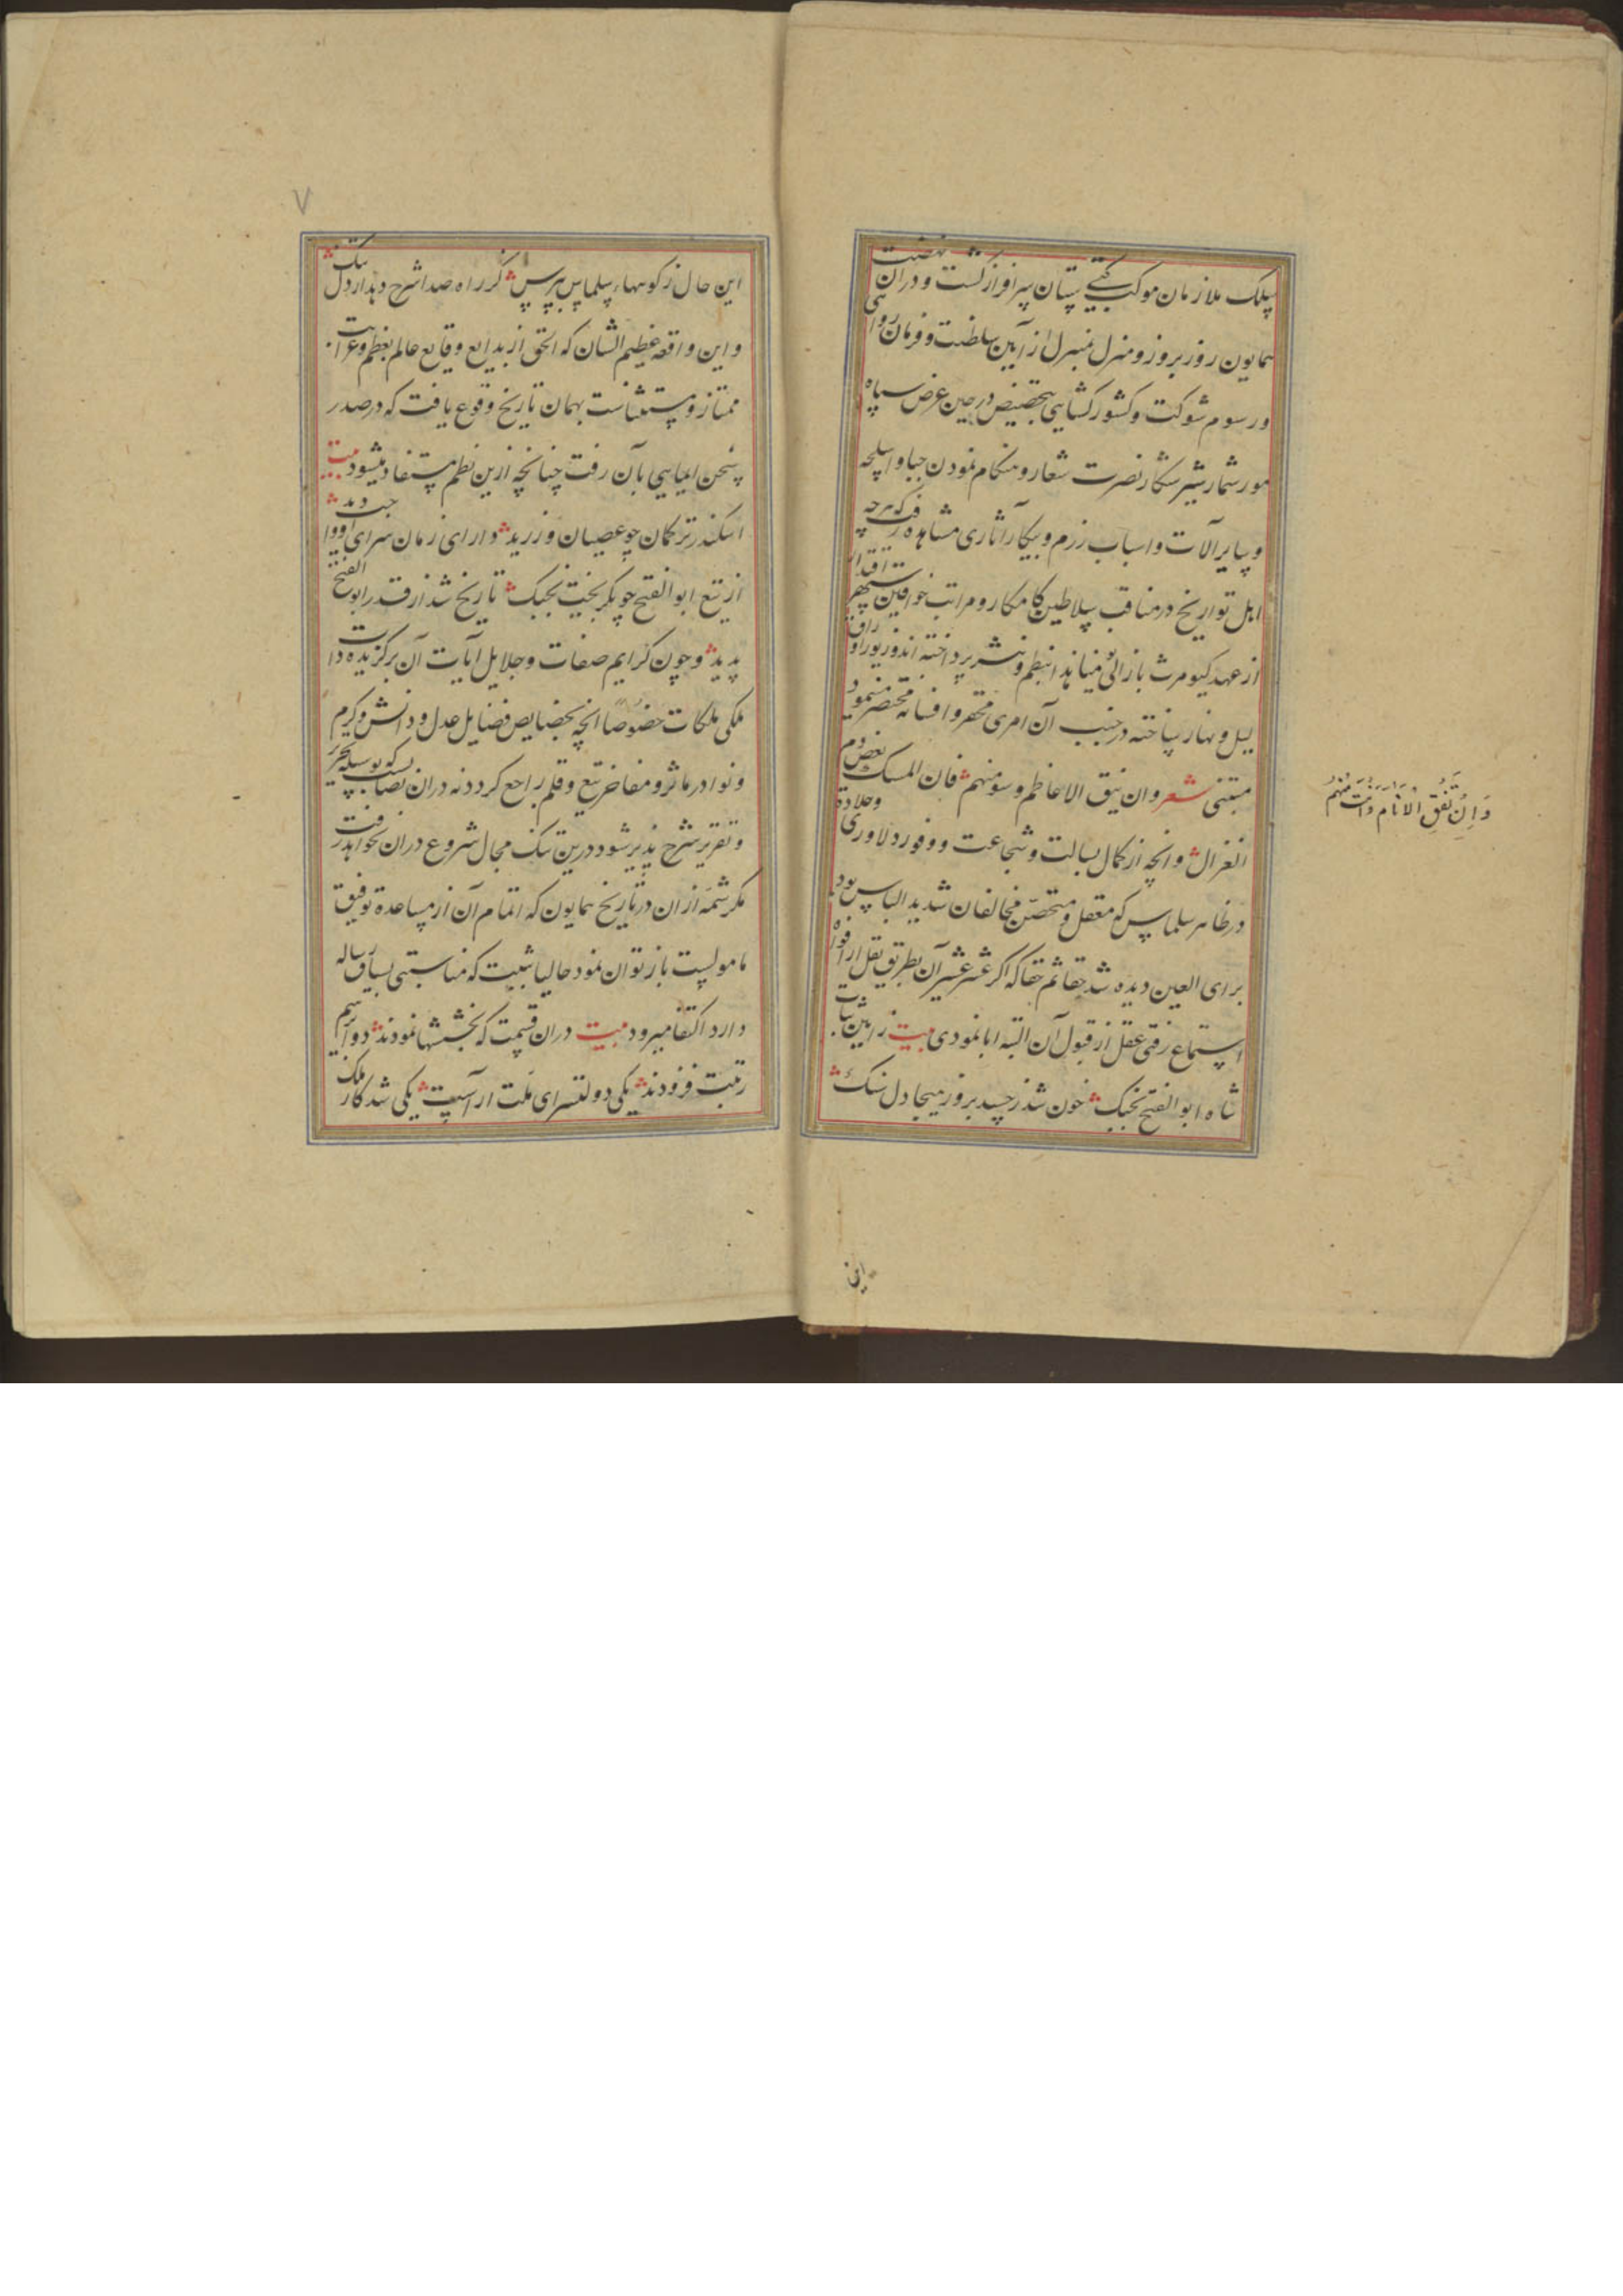 سلک ملازمان موکب گیتی ستان سرافراز گشت و دران نهضت
همایون روز بروز و منزل بمنزل از آیین سلطنت و فرمان روایی
و رسوم شوکت و کشورکشایی بتخصیص در حین عرض سپاه
مورشمار شیر شکار نصرت شعار و هنکام نمودن جبا و اسلحه
و سایر آلات و اسباب رزم و پیکار آثاری مشاهده رفت که هرچه
اهل تواریخ در مناقب سلاطین کامکار و مراتب خواقین سپهر اقتدار
از عهد کیومرث باز الی بنظم و نثر پرداخته اند و زیور اوراق
لیل و نهار ساخته در جنب آن امری محقر و افسانه مختصر مینمود
شعر وان یفق الاعاظم وسو منهم فان المسک بعض دم
الغزال و آنچه از کمال بسالت و شجاعت و وفور دلاوری و جلادة
در ظاهر سلماس که معقل و متحصن مخالفان شدید الباس بود
برای العین دیده شد حقا ثم حقا که اگر عشر عشیر آن بطریق نقل از افواه
استماع رفتی عقل از قبول آن البته ابا نمودی بیت
شاه ابو الفتح بجنک خون شد ز حسد بروز هیجا دل سنک
این
وَاِن تَفُقِ الاَنَامَ وَاَنتَ مِنهُم
۷
این حال ز کوههاء سلماس بپرس کز راه صدا شرح دهد از دل تنک
و این واقعه عظیم الشان که الحق از بدایع وقایع عالم بعظم و غرابت
ممتاز و مستثناست بهمان تاریخ وقوع یافت که در صدر
سخن ایمایی بآن رفت چنانچه ازین نظم مستفاد میشود بیت
اسکندر ترکمان چو عصیان ورزید دارای زمان سزای او
از تیغ ابو الفتح چو بکریخت بجنک تاریخ شد از قدر ابو الفتح
پدید و چون کرایم صفات و جلایل آیات آن برگزیده ذات
ملکی ملکات خصوصا آنچه بخصایص فضایل عدل و دانش و کرم
و نوادر مآثر و مفاخر تیغ و قلم راجع کردد نه دران نصابست که بوسیله تحریر
و تقریر شرح پذیر شود درین تنک مجال شروع دران نخواهد رفت
مکر شمه ازان در تاریخ همایون که اتمام آن از مساعده توفیق
مامولست باز توان نمود حالیا بثبت که مناسبتی بسیاق رساله
دارد اکتفا میرود بیت دران قسمت که بخششها نمودند دو را اسم
رتبت فزودند یکی دولتسرای ملت اراست یکی شد کار ملک